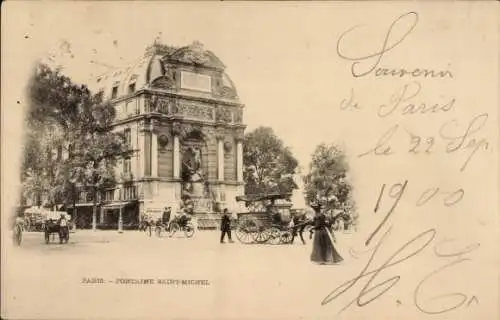 Souvenir
de Paris
le 22 Sep
1900
PARIS. - FONTAINE SAINT-MICHEL